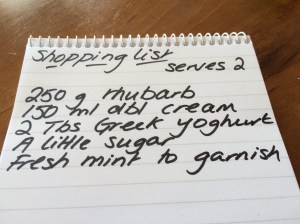 Shopping list
serves 2
250 g rhubarb
150 ml dbl cream
2 Tbs Greek yoghurt
A little sugar
Fresh mint to garnish